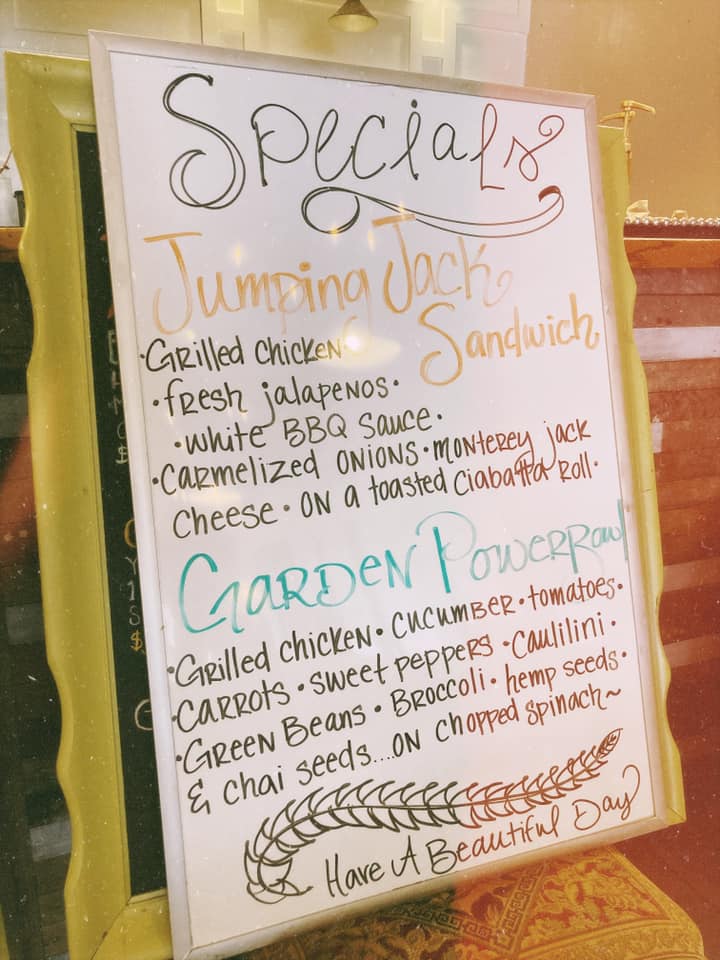 Specials
Jumping Jack
Sandwich
·Grilled chicken
·fresh jalapenos·
·white BBQ Sauce·
·Carmelized onions·monterey jack
Cheese·on a toasted Ciabatta Roll·
Garden PowerBowl
·Grilled chicken·cucumber·tomatoes·
carrots·sweet peppers·Caulilini·
·Green Beans·Broccoli·hemp seeds·
& chai seeds....on chopped spinach~
Have A Beautiful Day